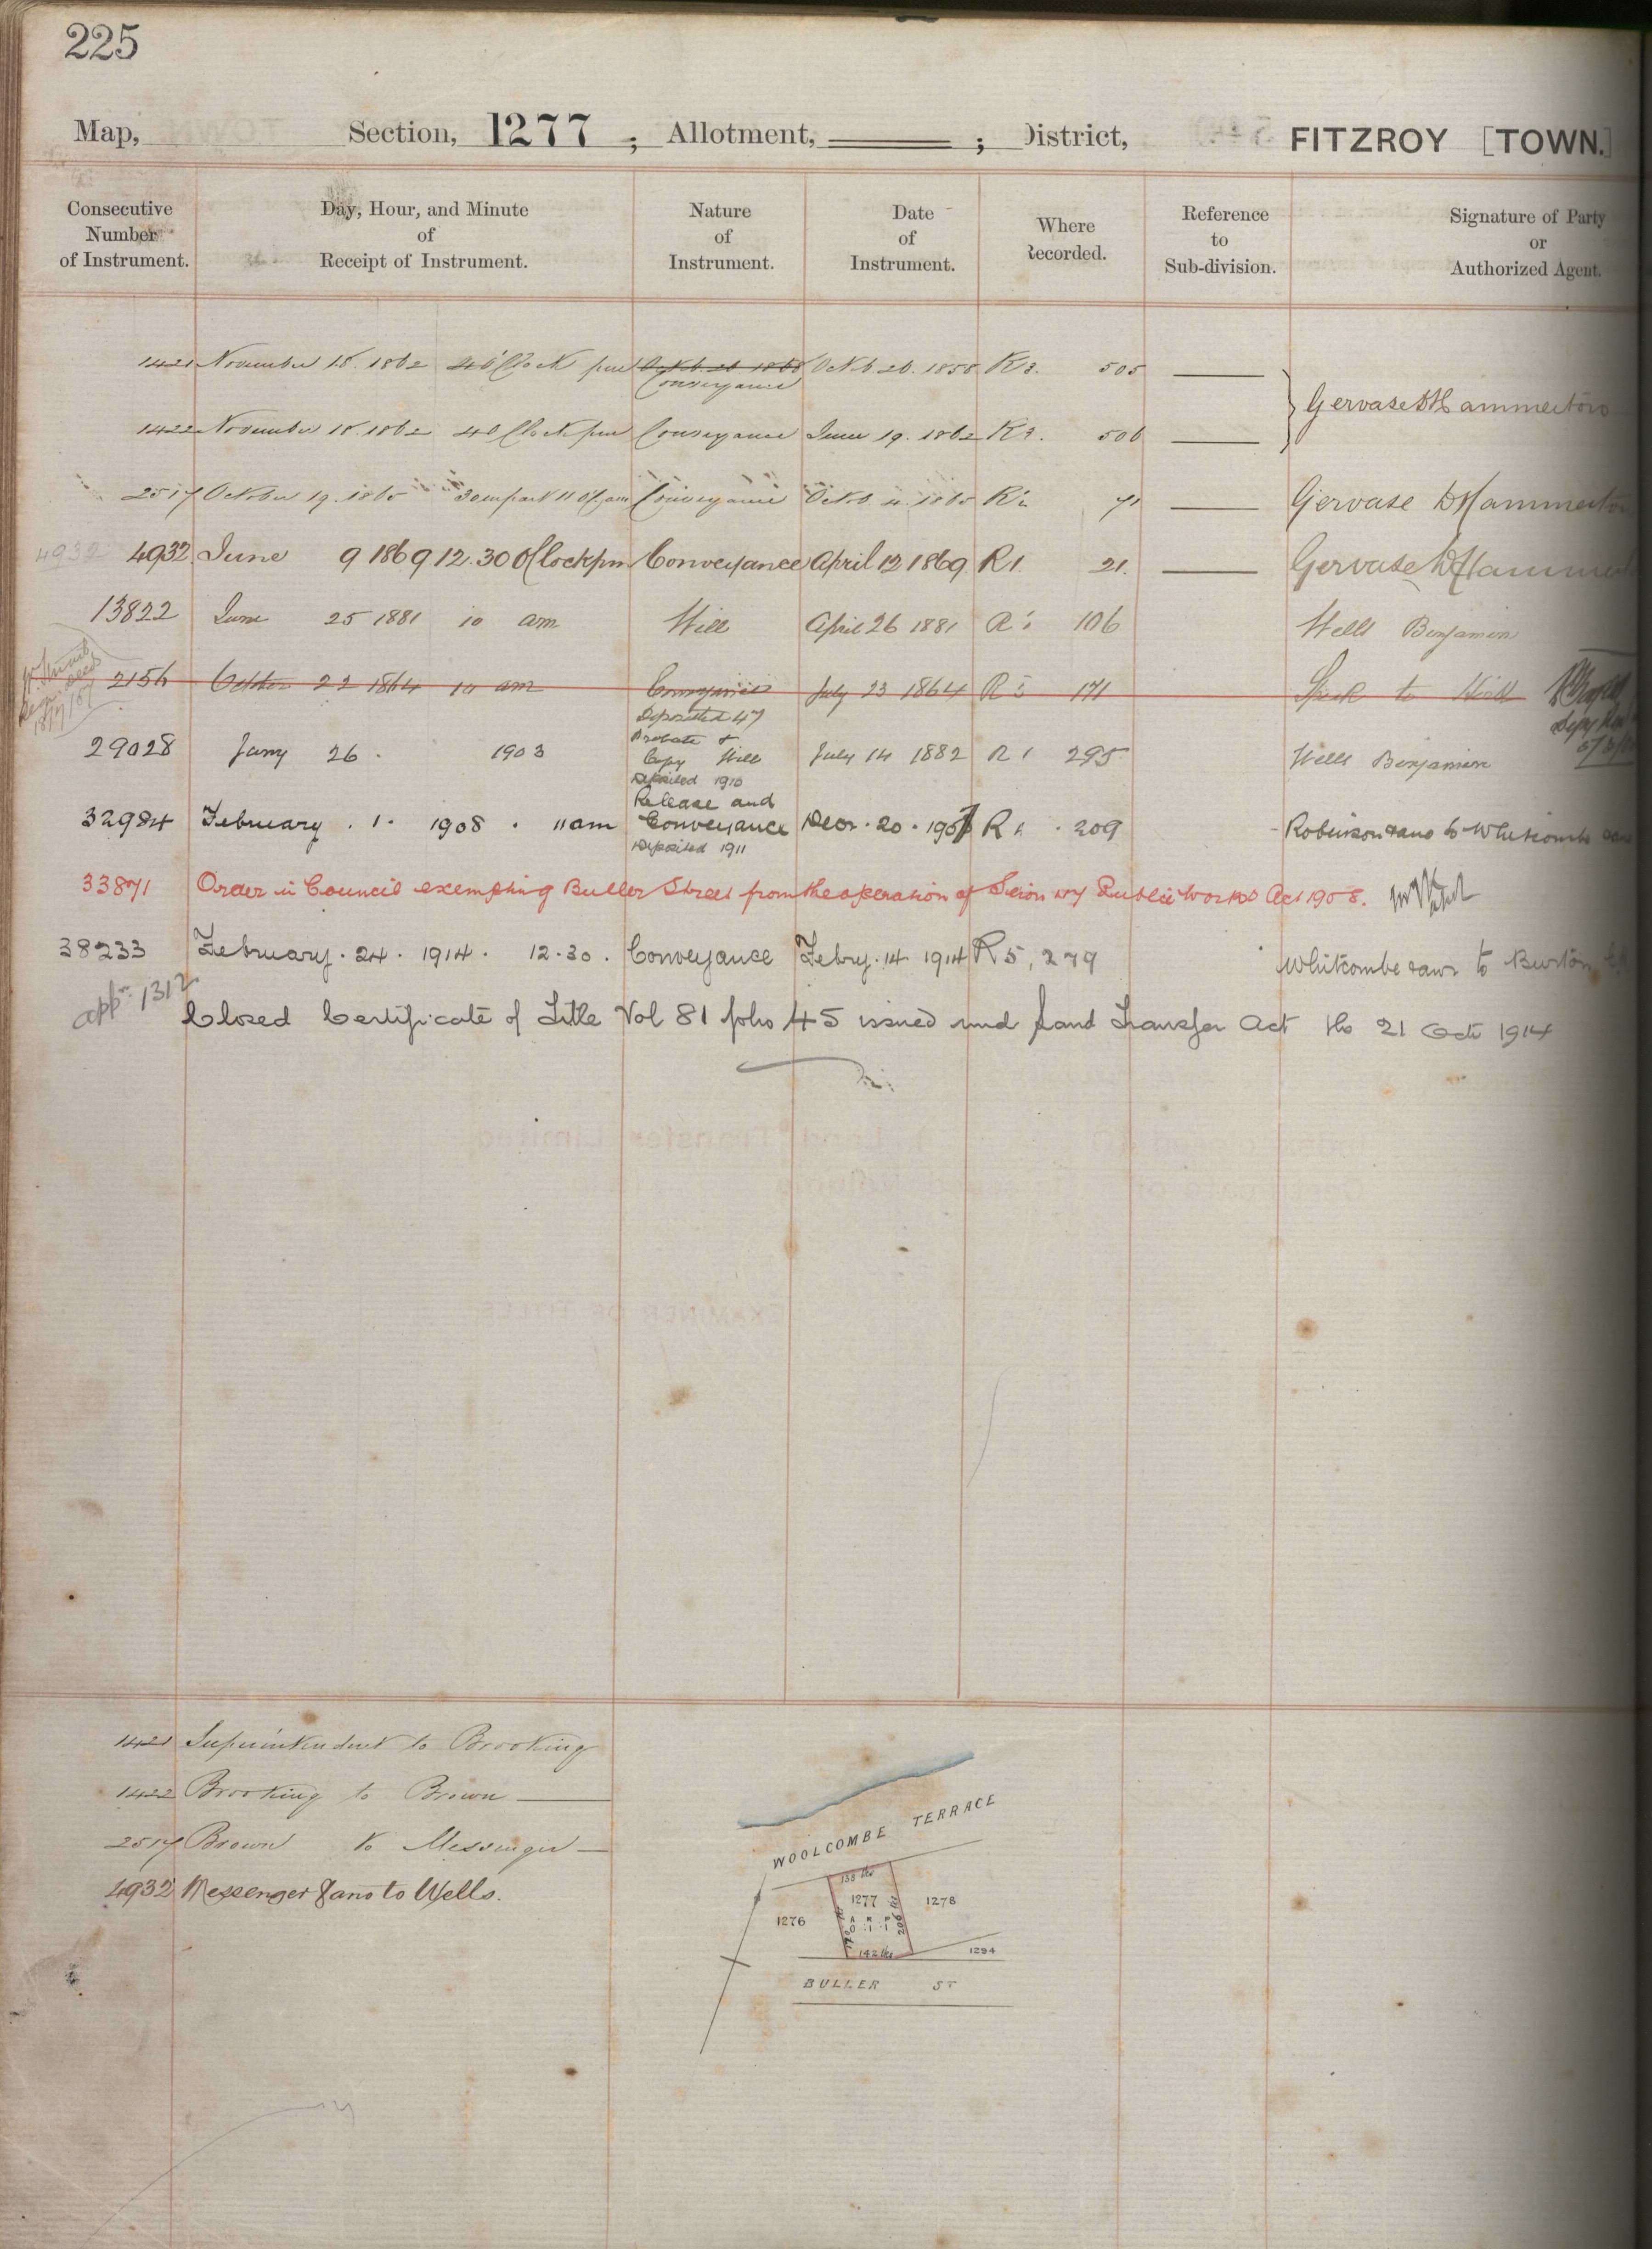 225
Map, Section, 1277 ; Allotment, ; District, FITZROY [TOWN.]
Consecutive Number of Instrument. Day, Hour, and Minute of Receipt of Instrument. Nature of Instrument. Date of Instrument. Where Recorded. Reference to Sub-division. Signature of Party or Authorized Agent.
1421 November 18. 1862 4 O'Clock pm Octb. 26 1858 Conveyance Octb. 26. 1858 R 3. 505
Gervase D Hammerton
1422 November 18. 1862 4 O Clock pm Conveyance June 19. 1862 R 3. 506
2517 October 19. 1865 30 m past 11 O C. am Conveyance Octb. 4. 1865 71 Gervase D Hammerton
4932 4932 June 9 1869 12.30 O'Clock pm Conveyance April 12 1869 R 1. 21. Gervase D Hammerton
13822 June 25 1881 10 am Will April 26 1881 R 1 106 Wells Benjamin
2156 October 22 1864 10 am Conveyance July 23 1864 R 5 171
Deposited 47
29028 Jany 26. 1903 Probate & Copy Will July 14 1882 R 1 295 Wells Benjamin
Deposited 1910
32984 February . 1. 1908 . 11 am Release and Conveyance Decr. 20. 1907 R . 209 Robinson & ano to Whitcombe & ano
Deposited 1911
33871 Order in Council exempting Buller Street from the operation of Public Works Act 1908.
38233 February. 24. 1914. 12.30. Conveyance Febry. 14 1914 R 5, 279 Whitcombe & anr to Burton
appn. 1312
Closed Certificate of Title Vol 81 folio 45 issued und Land Transfer Act the 21 Oct 1914
1421 Superintendent to Brooking
1422 Brooking to Brown
2517 Brown to Messenger
4932 Messenger & ano to Wells.
WOOLCOMBE TERRACE
1277
1278
1276
A R P
0 . 1 . 1
206 lks
142 lks
1294
BULLER ST